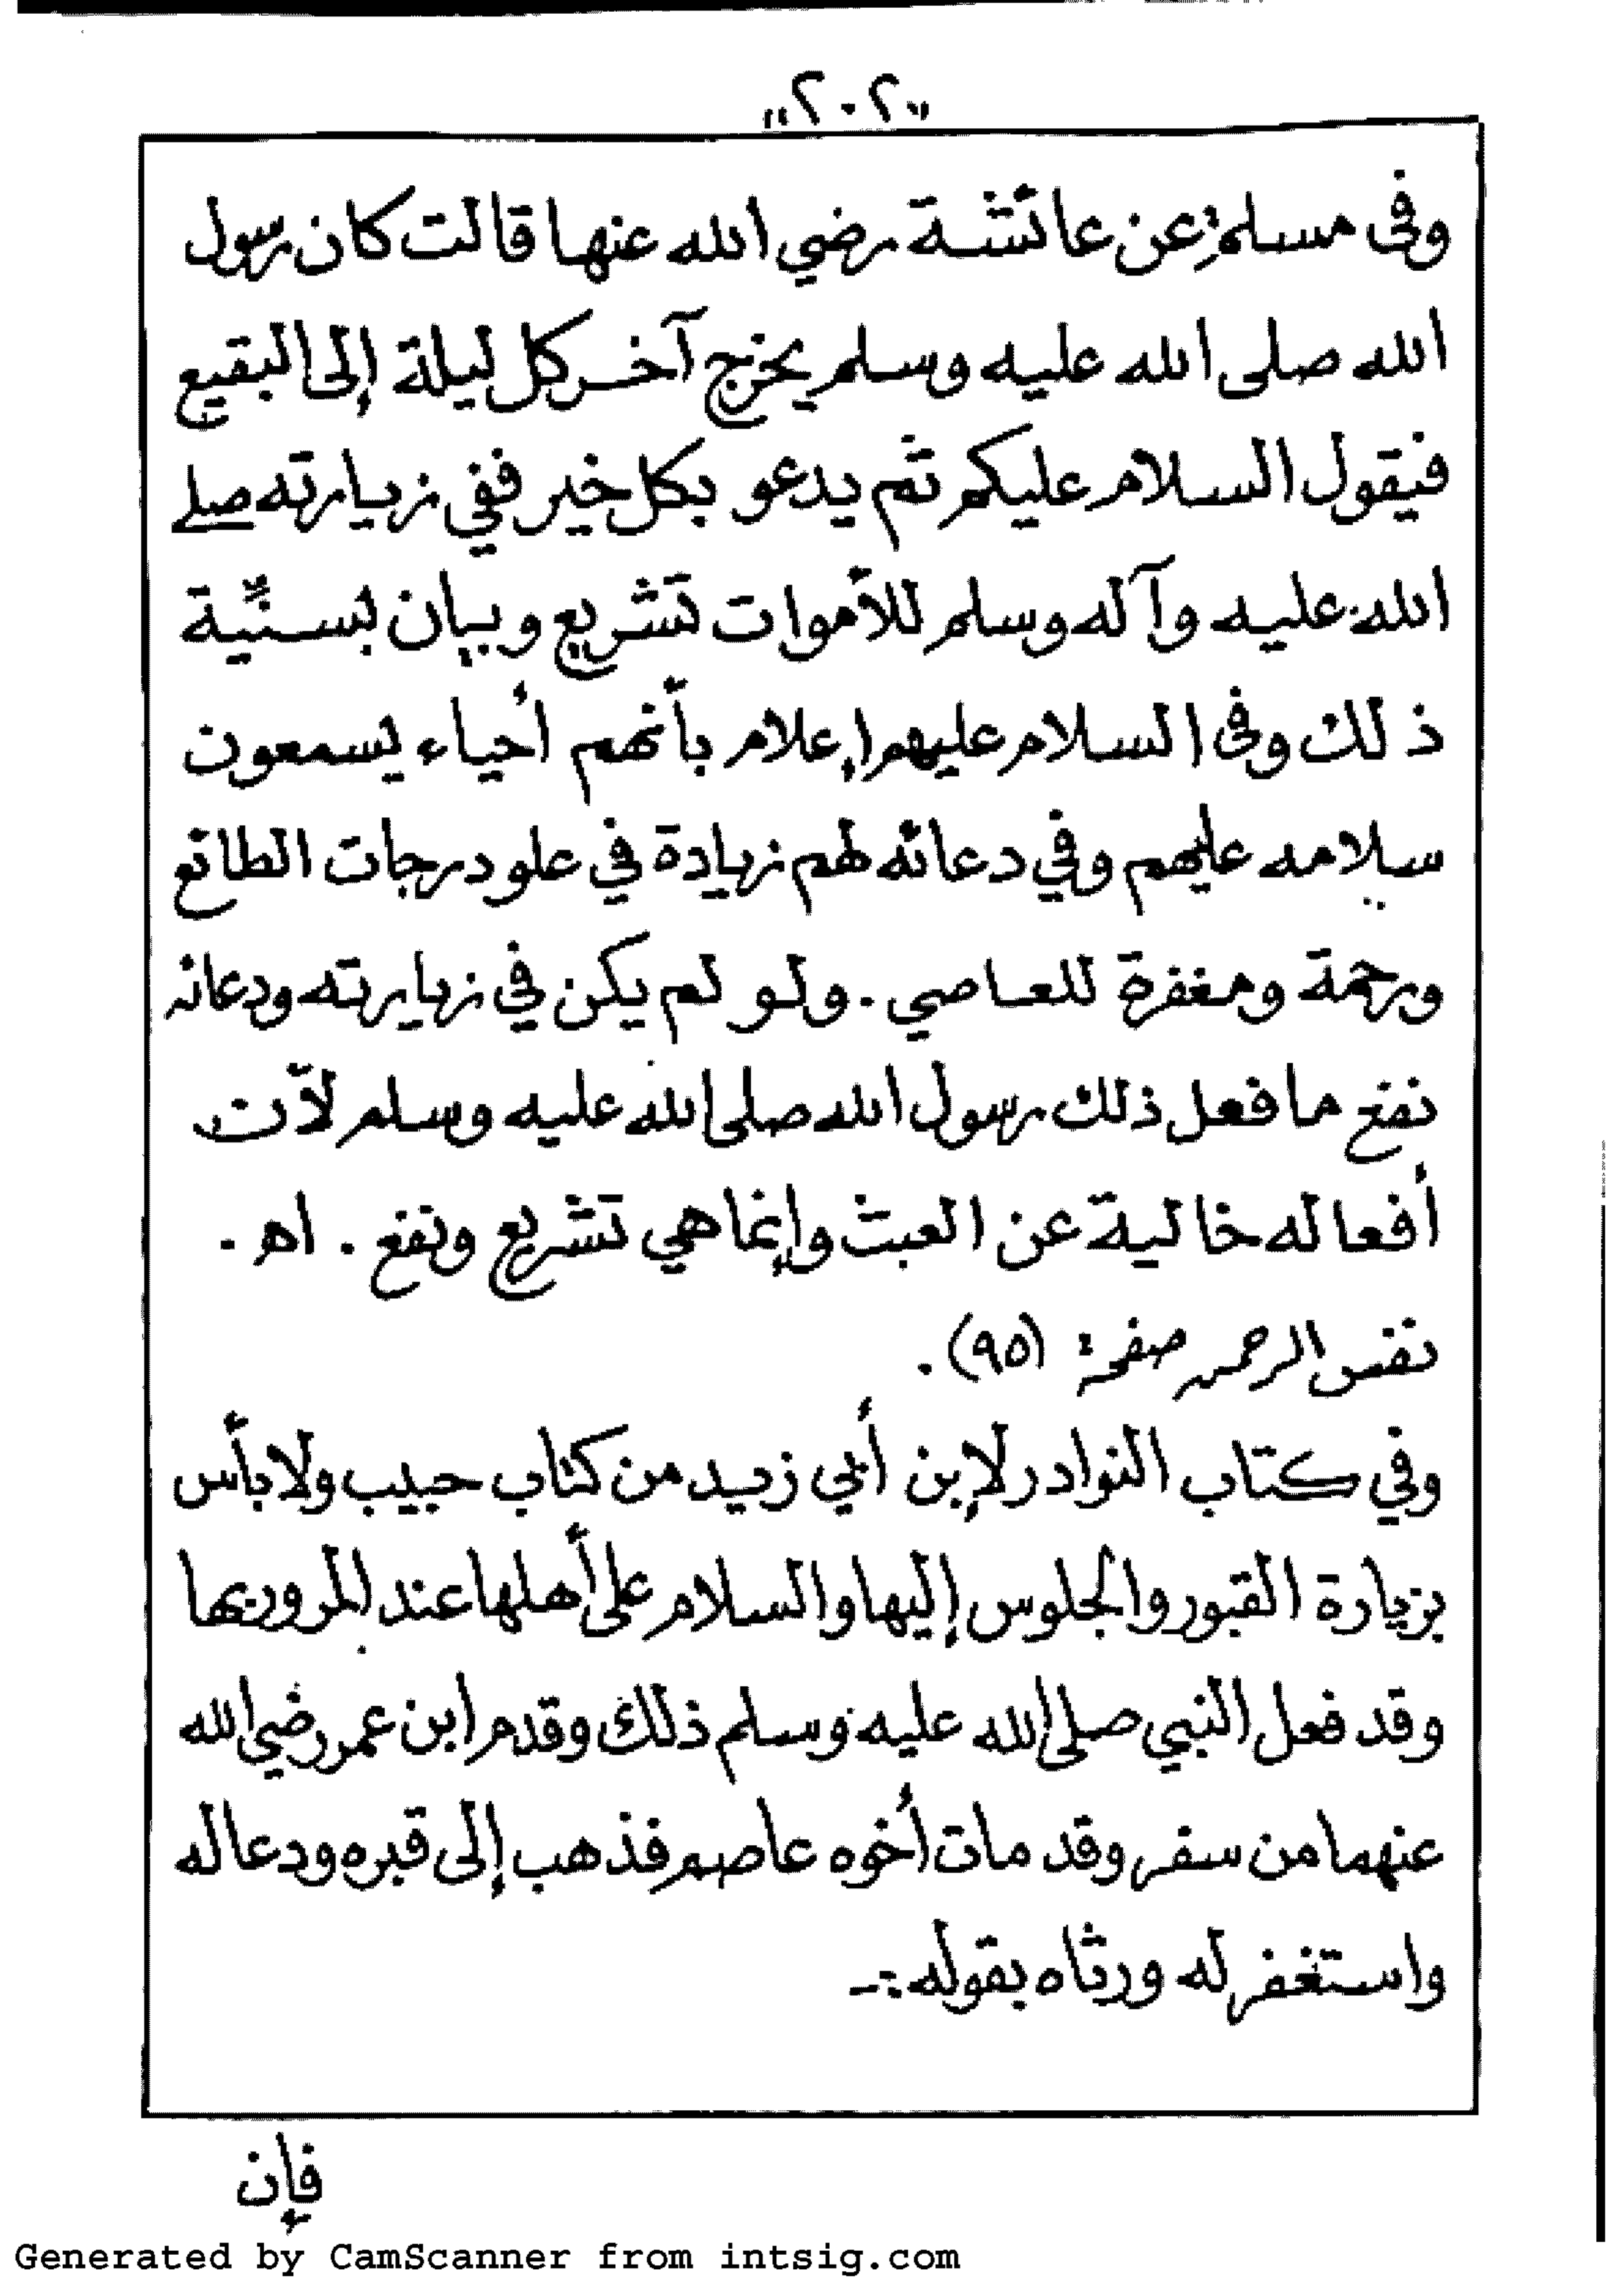 "٢٠٢"
وفى مسلم: عن عائشة رضي الله عنها قالت كان رسول
الله صلى الله عليه وسلم يخرج آخر كل ليلة إلى البقيع
فيقول السلام عليكم ثم يدعو بكل خير ففي زيارته صلى
الله عليه وآله وسلم للأموات تشريع وبيان لسنّية
ذلك وفى السلام عليهم إعلام بأنهم أحياء يسمعون
سلامه عليهم وفي دعائه لهم زيادة في علو درجات الطائع
ورحمة ومغفرة للعاصي. ولو لم يكن في زيارته ودعائه
نفع ما فعل ذلك رسول الله صلى الله عليه وسلم لأن
أفعاله خالية عن العبث وإنما هي تشريع ونفع. اهـ.
نفس الرحمن صفحة (٩٥).
وفي كتاب النوادر لإبن أبي زيد من كتاب حبيب ولا بأس
بزيارة القبور والجلوس إليها والسلام على أهلها عند المرور بها
وقد فعل النبي صلى الله عليه وسلم ذلك وقدم ابن عمر رضي الله
عنهما من سفر وقد مات أخوه عاصم فذهب إلى قبره ودعا له
واستغفر له ورثاه بقوله:-
فإن
Generated by CamScanner from intsig.com